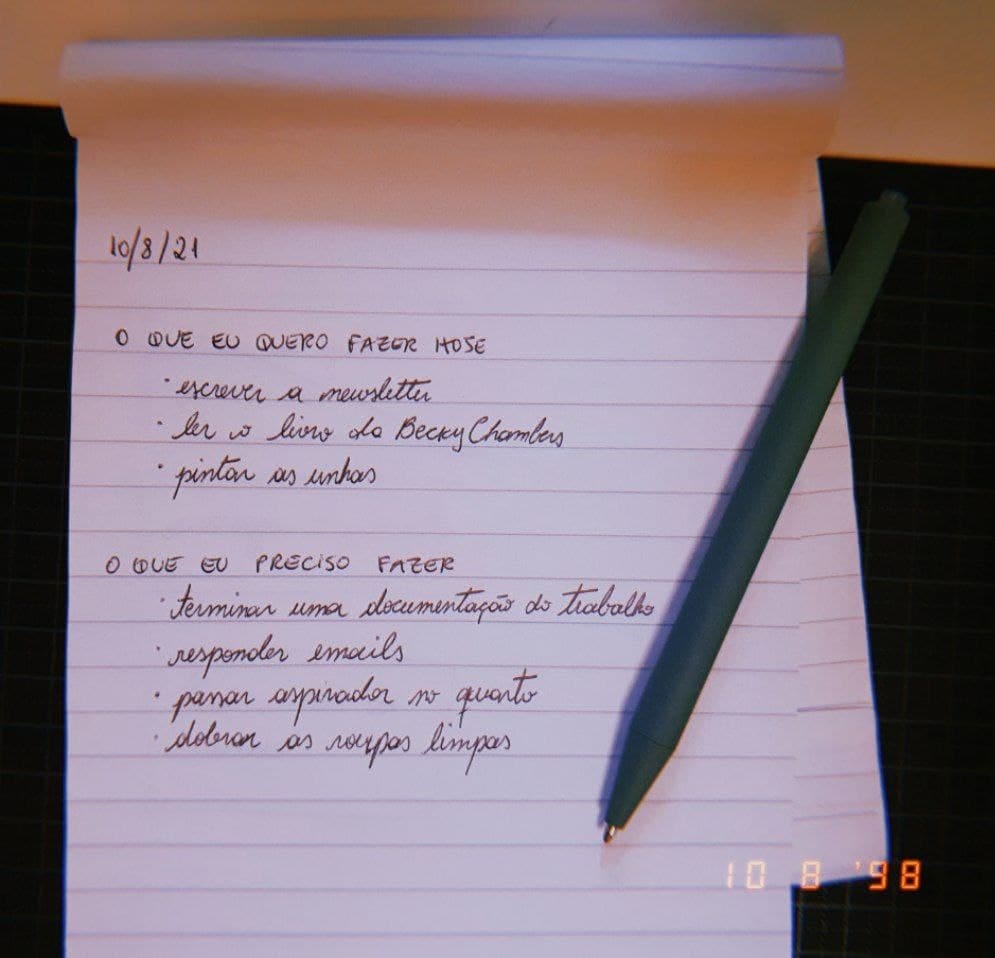 10/8/21
O QUE EU QUERO FAZER HOJE
· escrever a newsletter
· ler o livro da Becky Chambers
· pintar as unhas
O QUE EU PRECISO FAZER
· terminar uma documentação do trabalho
· responder emails
· passar aspirador no quarto
· dobrar as roupas limpas
10 8 '98